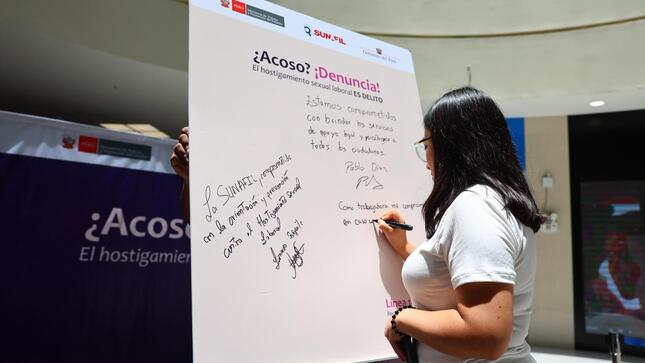 PERÚ
SUNAFIL
¿Acoso? ¡Denuncia!
El hostigamiento sexual laboral ES DELITO
Estamos comprometidos
con brindar los servicios
de apoyo legal y psicológico a
todos los ciudadanos.
Pablo Díaz
La SUNAFIL, comprometida
con la orientación y prevención
contra el Hostigamiento Sexual
laboral
Como trabajadora me comprom
en caso
Línea 1
PERÚ
¿Acoso
El hostigamiento